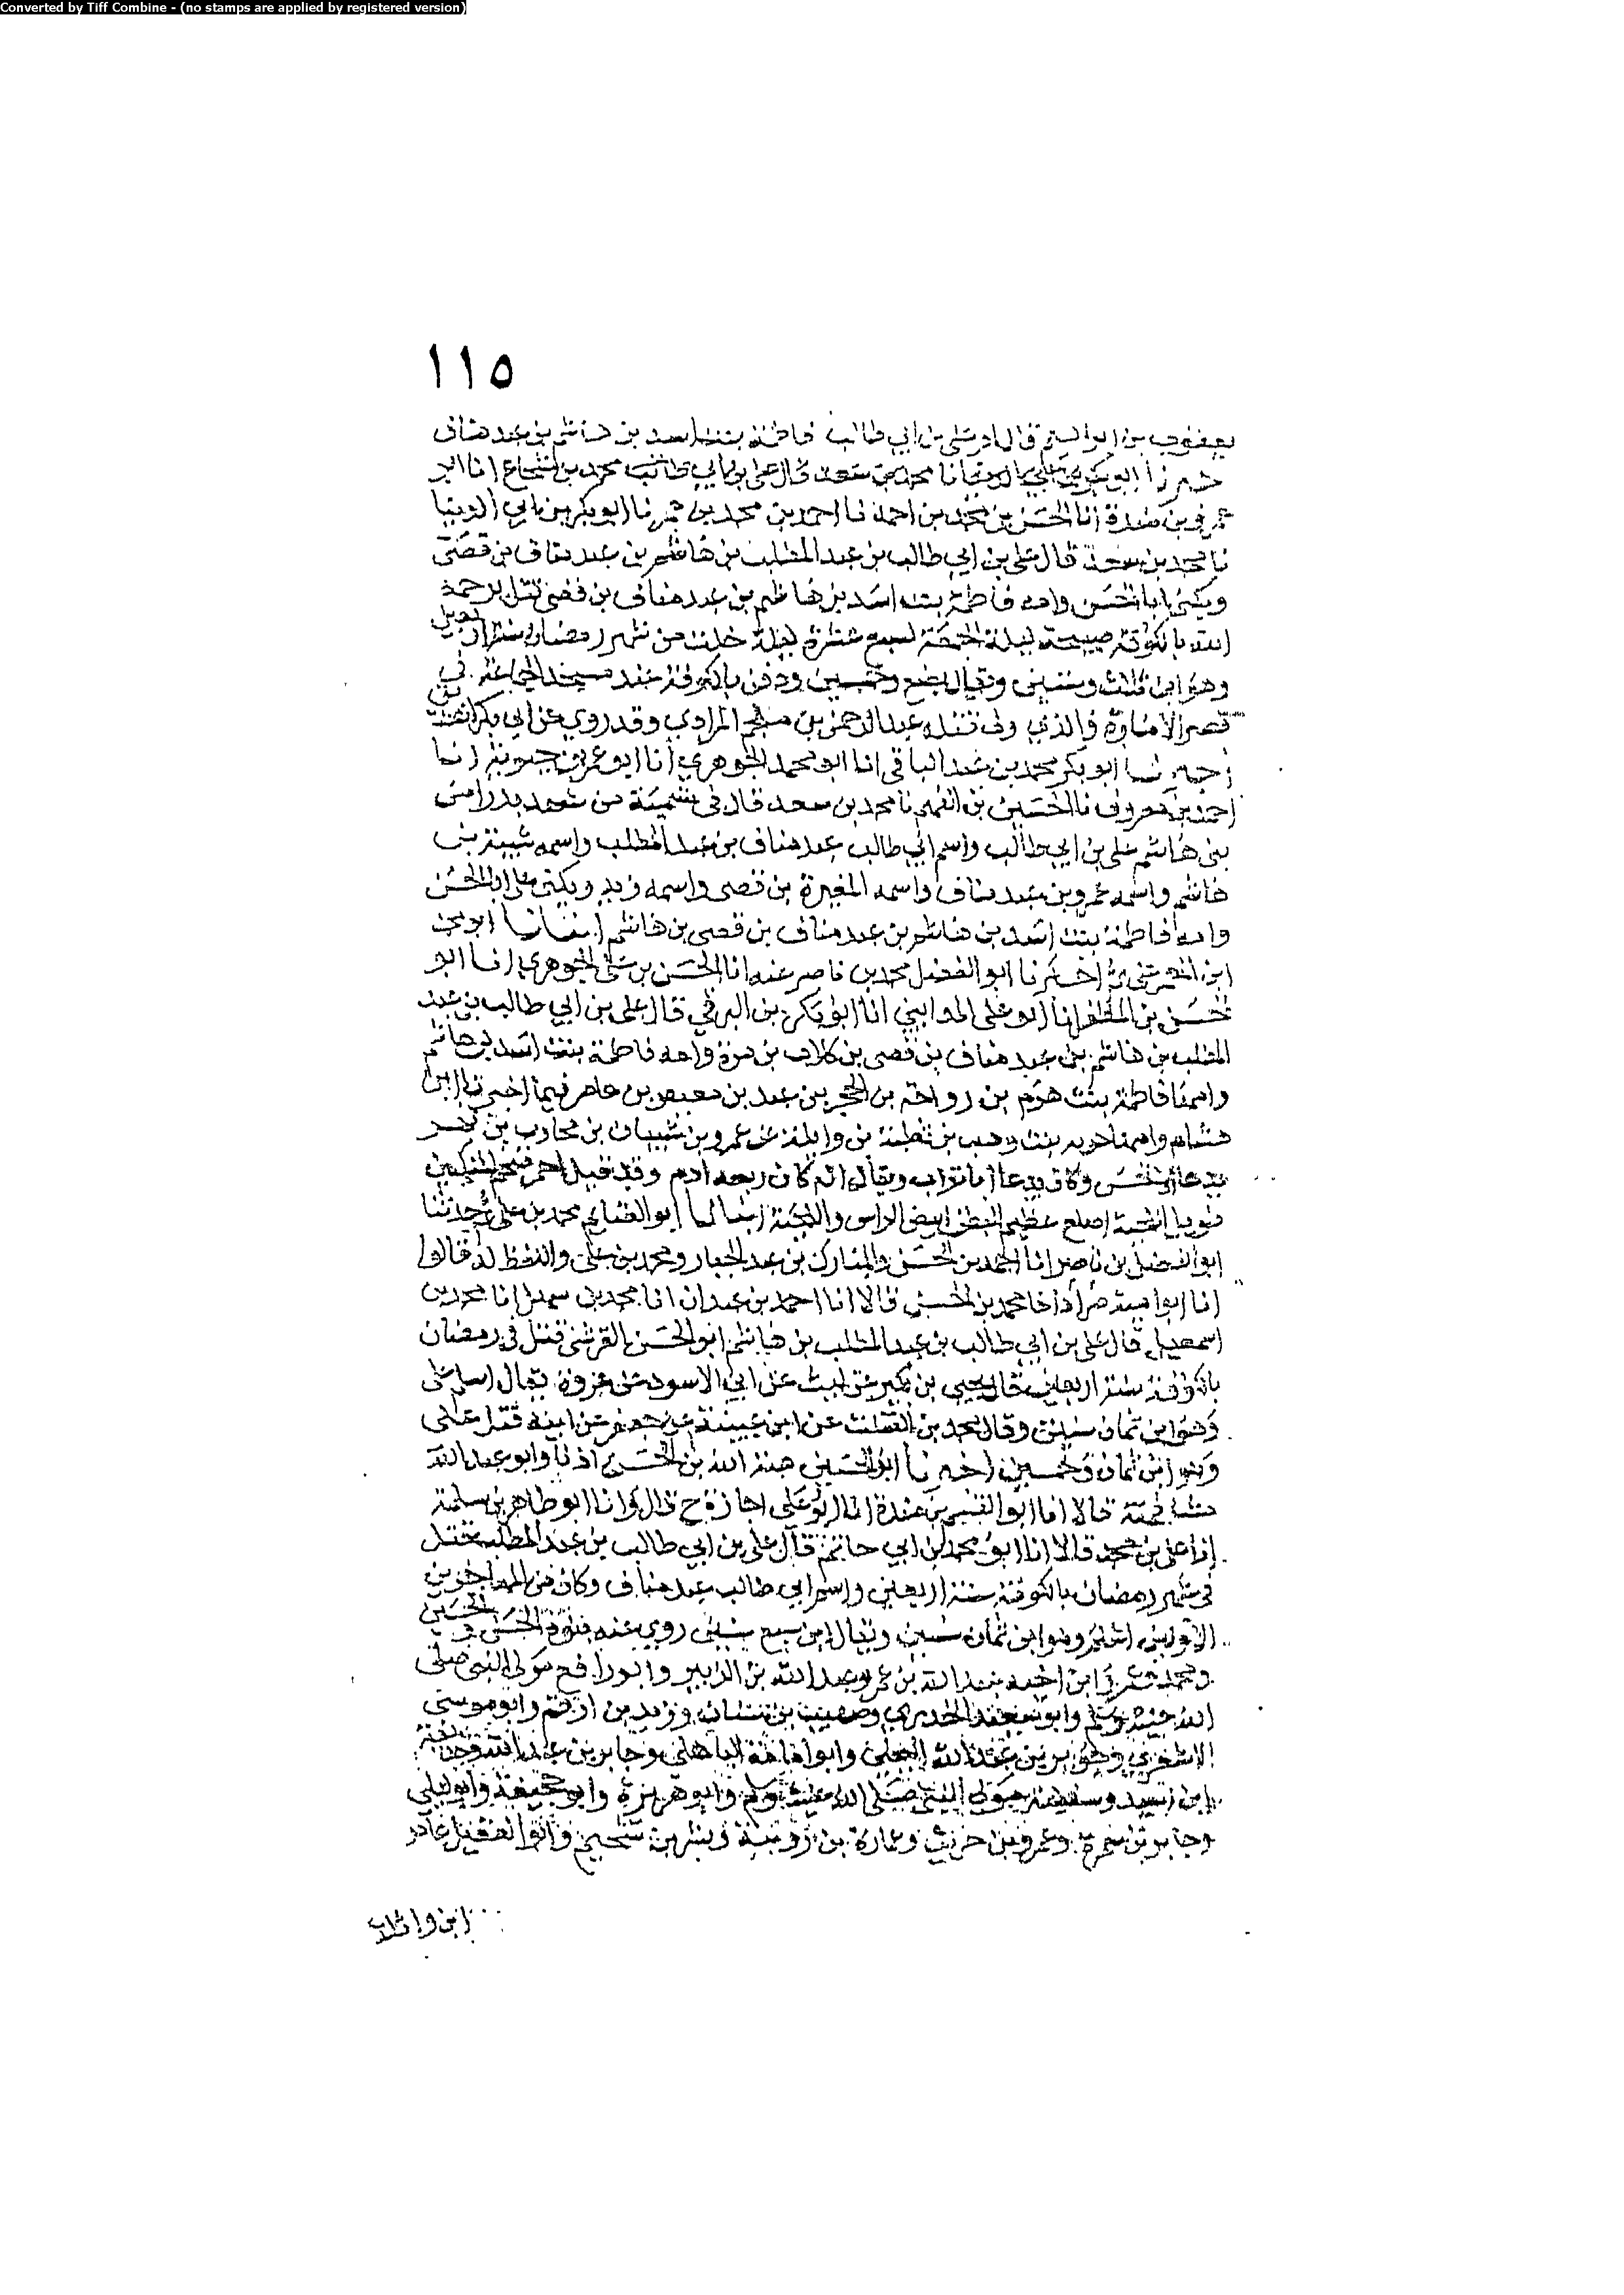 Converted by Tiff Combine - (no stamps are applied by registered version)
١١٥
يعقوب بن ابراهيم قال ام علي بن ابي طالب فاطمة بنت اسد بن هاشم بن عبد مناف
ابو بكر محمد بن شجاع انا ابو
عمرو بن مندة انا الحسن بن محمد بن احمد نا احمد بن محمد بن عمر نا ابو بكر بن ابي الدنيا
نا محمد بن سعد قال علي بن ابي طالب بن عبد المطلب بن هاشم بن عبد مناف بن قصي
ويكنى ابا الحسن وامه فاطمة بنت اسد بن هاشم بن عبد مناف بن قصي قتل يرحمه
الله بالكوفة صبيحة ليلة الجمعة لسبع عشرة ليلة خلت من شهر رمضان سنة اربعين
وهو ابن ثلاث وستين ودفن بالكوفة عند مسجد الجماعة في
قصر الامارة والذي ولي قتله عبد الرحمن بن ملجم المرادي وقد روي عن ابي بكر
ابو بكر محمد بن عبد الباقي انا ابو محمد الجوهري انا ابو عمر بن حيوية انا
احمد بن معروف نا الحسين بن الفهم نا محمد بن سعد قال في تسمية من شهد بدرا من
بني هاشم علي بن ابي طالب واسم ابي طالب عبد مناف بن عبد المطلب واسمه شيبة بن
هاشم واسمه عمرو بن عبد مناف واسمه المغيرة بن قصي واسمه زيد ويكنى علي ابا الحسن
وامه فاطمة بنت اسد بن هاشم بن عبد مناف بن قصي بن هاشم انبانا ابو محمد
ابن اخبرنا ابو الفضل محمد بن ناصر عنه انا الحسن بن علي الجوهري انا ابو
الحسن بن المظفر انا ابو علي المدايني انا ابو بكر بن البرقي قال علي بن ابي طالب بن عبد
المطلب بن هاشم بن عبد مناف بن قصي بن كلاب بن مرة وامه فاطمة بنت اسد بن هاشم
وامها فاطمة بنت هرم بن رواحة بن حجر بن عبد بن معيص بن عامر فيما اخبرنا ابن
هشام وامها بنت وهب بن ثعلبة بن وايلة بن عمرو بن شيبان بن محارب بن فهر
وكان يدعا ابا تراب ويقال انه كان ربعه ادم وقد قيل احمر ضخم المنكبين
طويل اللحية اصلع عظيم البطن ابيض الراس واللحية انبانا ابو الغنايم محمد بن علي ثم حدثنا
ابو الفضل بن ناصر انا احمد بن الحسن والمبارك بن عبد الجبار ومحمد بن علي واللفظ له قالوا
انا ابو احمد زاد احمد ومحمد بن الحسن قالا انا احمد بن عبدان انا محمد بن سهل انا محمد بن
اسمعيل قال علي بن ابي طالب بن عبد المطلب بن هاشم ابو الحسن القرشي قتل في رمضان
بالكوفة سنة اربعين قال يحيى بن بكير عن ليث عن ابي الاسود عن عروة قال اسلم علي
وهو ابن ثمان سنين وقال محمد بن الصلت عن ابن عيينة عن جعفر عن ابيه قتل علي
وهو ابن ثمان وخمسين اخبرنا ابو الحسين هبة الله بن الحسن اذنا وابو عبد الله
قالا انا ابو القسم بن مندة انا ابو علي اجازة ح قال وانا ابو طاهر بن سلمة
انا علي بن محمد قالا انا ابو محمد بن ابي حاتم قال علي بن ابي طالب بن عبد المطلب قتل
في شهر رمضان بالكوفة سنة اربعين واسم ابي طالب عبد مناف وكان من المهاجرين
الاولين اسلم وهو ابن ثمان سنين ويقال ابن سبع سنين روى عنه الحسن والحسين
ابن اخيه عبد الله بن عمر وعبد الله بن الزبير وابو رافع مولى النبي صلى
الله عليه وسلم وابو سعيد الخدري وصهيب بن سنان وزيد بن ارقم وابو موسى
الاشعري وجرير بن عبد الله البجلي وابو امامة الباهلي وجابر بن عبد الله وحذيفة
ابن اسيد وسفينة مولى النبي صلى الله عليه وسلم وابو هريرة وابو جحيفة وابو ليلى
وجابر بن سمرة وعمرو بن حريث وعمارة بن رويبة وبشر بن سحيم وابو الطفيل عامر
ابن واثلة